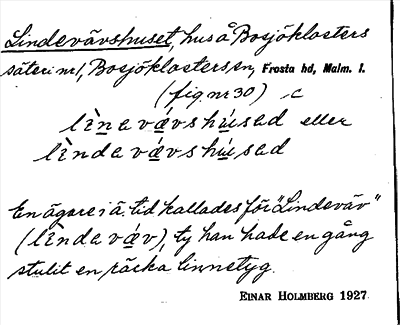 Lindevävshuset, hus å Bosjöklosters
säteri nr 1, Bosjöklosters sn, Frosta hd, Malm. l.
(fig. nr 30) c
lìnavǽvshúsad eller
lìndavǽvshúsad
En ägare i ä. tid kallades för "Lindeväv"
(lìndavǽv), ty han hade en gång
stulit en räcka linnetyg.
EINAR HOLMBERG 1927.